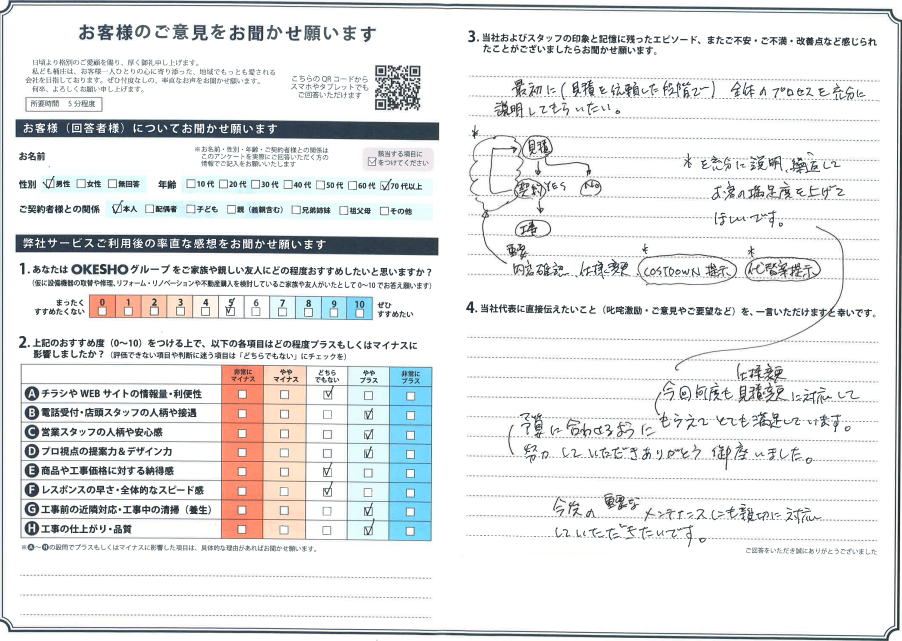 お客様のご意見をお聞かせ願います
日頃より格別のご愛顧を賜り、厚く御礼申し上げます。
私ども桶庄は、お客様一人ひとりの心に寄り添った、地域でもっとも愛される
会社を目指しております。ぜひ忖度なしの、率直なお声をお聞かせ願います。
何卒、よろしくお願い申し上げます。
所要時間 5分程度
こちらのQRコードから
スマホやタブレットでも
ご回答いただけます
お客様(回答者様)についてお聞かせ願います
お名前
※お名前・性別・年齢・ご契約者様との関係は
このアンケートを実際にご回答いただく方の
情報でご記入をお願いいたします
該当する項目に
☑をつけてください
性別 ☑男性 □女性 □無回答 年齢 □10代 □20代 □30代 □40代 □50代 □60代 ☑70代以上
ご契約者様との関係 ☑本人 □配偶者 □子ども □親(義親含む) □兄弟姉妹 □祖父母 □その他
弊社サービスご利用後の率直な感想をお聞かせ願います
1. あなたは OKESHO グループ をご家族や親しい友人にどの程度おすすめしたいと思いますか?
(仮に設備機器の取替や修理、リフォーム・リノベーションや不動産購入を検討しているご家族や友人がいたとして0〜10でお答え願います)
まったく
すすめたくない
0 1 2 3 4 5 6 7 8 9 10
ぜひ
すすめたい
2. 上記のおすすめ度(0〜10)をつける上で、以下の各項目はどの程度プラスもしくはマイナスに
影響しましたか?(評価できない項目や判断に迷う項目は「どちらでもない」にチェックを)
非常にマイナス ややマイナス どちらでもない ややプラス 非常にプラス
A チラシやWEBサイトの情報量・利便性 □ □ ☑ □ □
B 電話受付・店頭スタッフの人柄や接遇 □ □ □ ☑ □
C 営業スタッフの人柄や安心感 □ □ □ ☑ □
D プロ視点の提案力&デザイン力 □ □ □ ☑ □
E 商品や工事価格に対する納得感 □ □ ☑ □ □
F レスポンスの早さ・全体的なスピード感 □ □ ☑ □ □
G 工事前の近隣対応・工事中の清掃(養生) □ □ □ ☑ □
H 工事の仕上がり・品質 □ □ □ ☑ □
※A〜Hの設問でプラスもしくはマイナスに影響した項目は、具体的な理由があればお聞かせ願います。
3. 当社およびスタッフの印象と記憶に残ったエピソード、またご不安・ご不満・改善点など感じられ
たことがございましたらお聞かせ願います。
最初に(見積を依頼した段階で)全体のプロセスを充分に
説明してもらいたい。
*
見積
契約 YES No
工事
*を充分に説明、
お客の満足度を上げて
ほしいです。
重要
内容確認、仕様変更、
* COSTDOWN提示
* 代替案提示
4. 当社代表に直接伝えたいこと(叱咤激励・ご意見やご要望など)を、一言いただけますと幸いです。
仕様変更
今回何度も見積変更に対応して
もらえてとても満足しています。
予算に合わせるように
努力していただきありがとう御座いました。
今後の重要な メンテナンスにも親切に対応
していただきたいです。
ご回答をいただき誠にありがとうございました